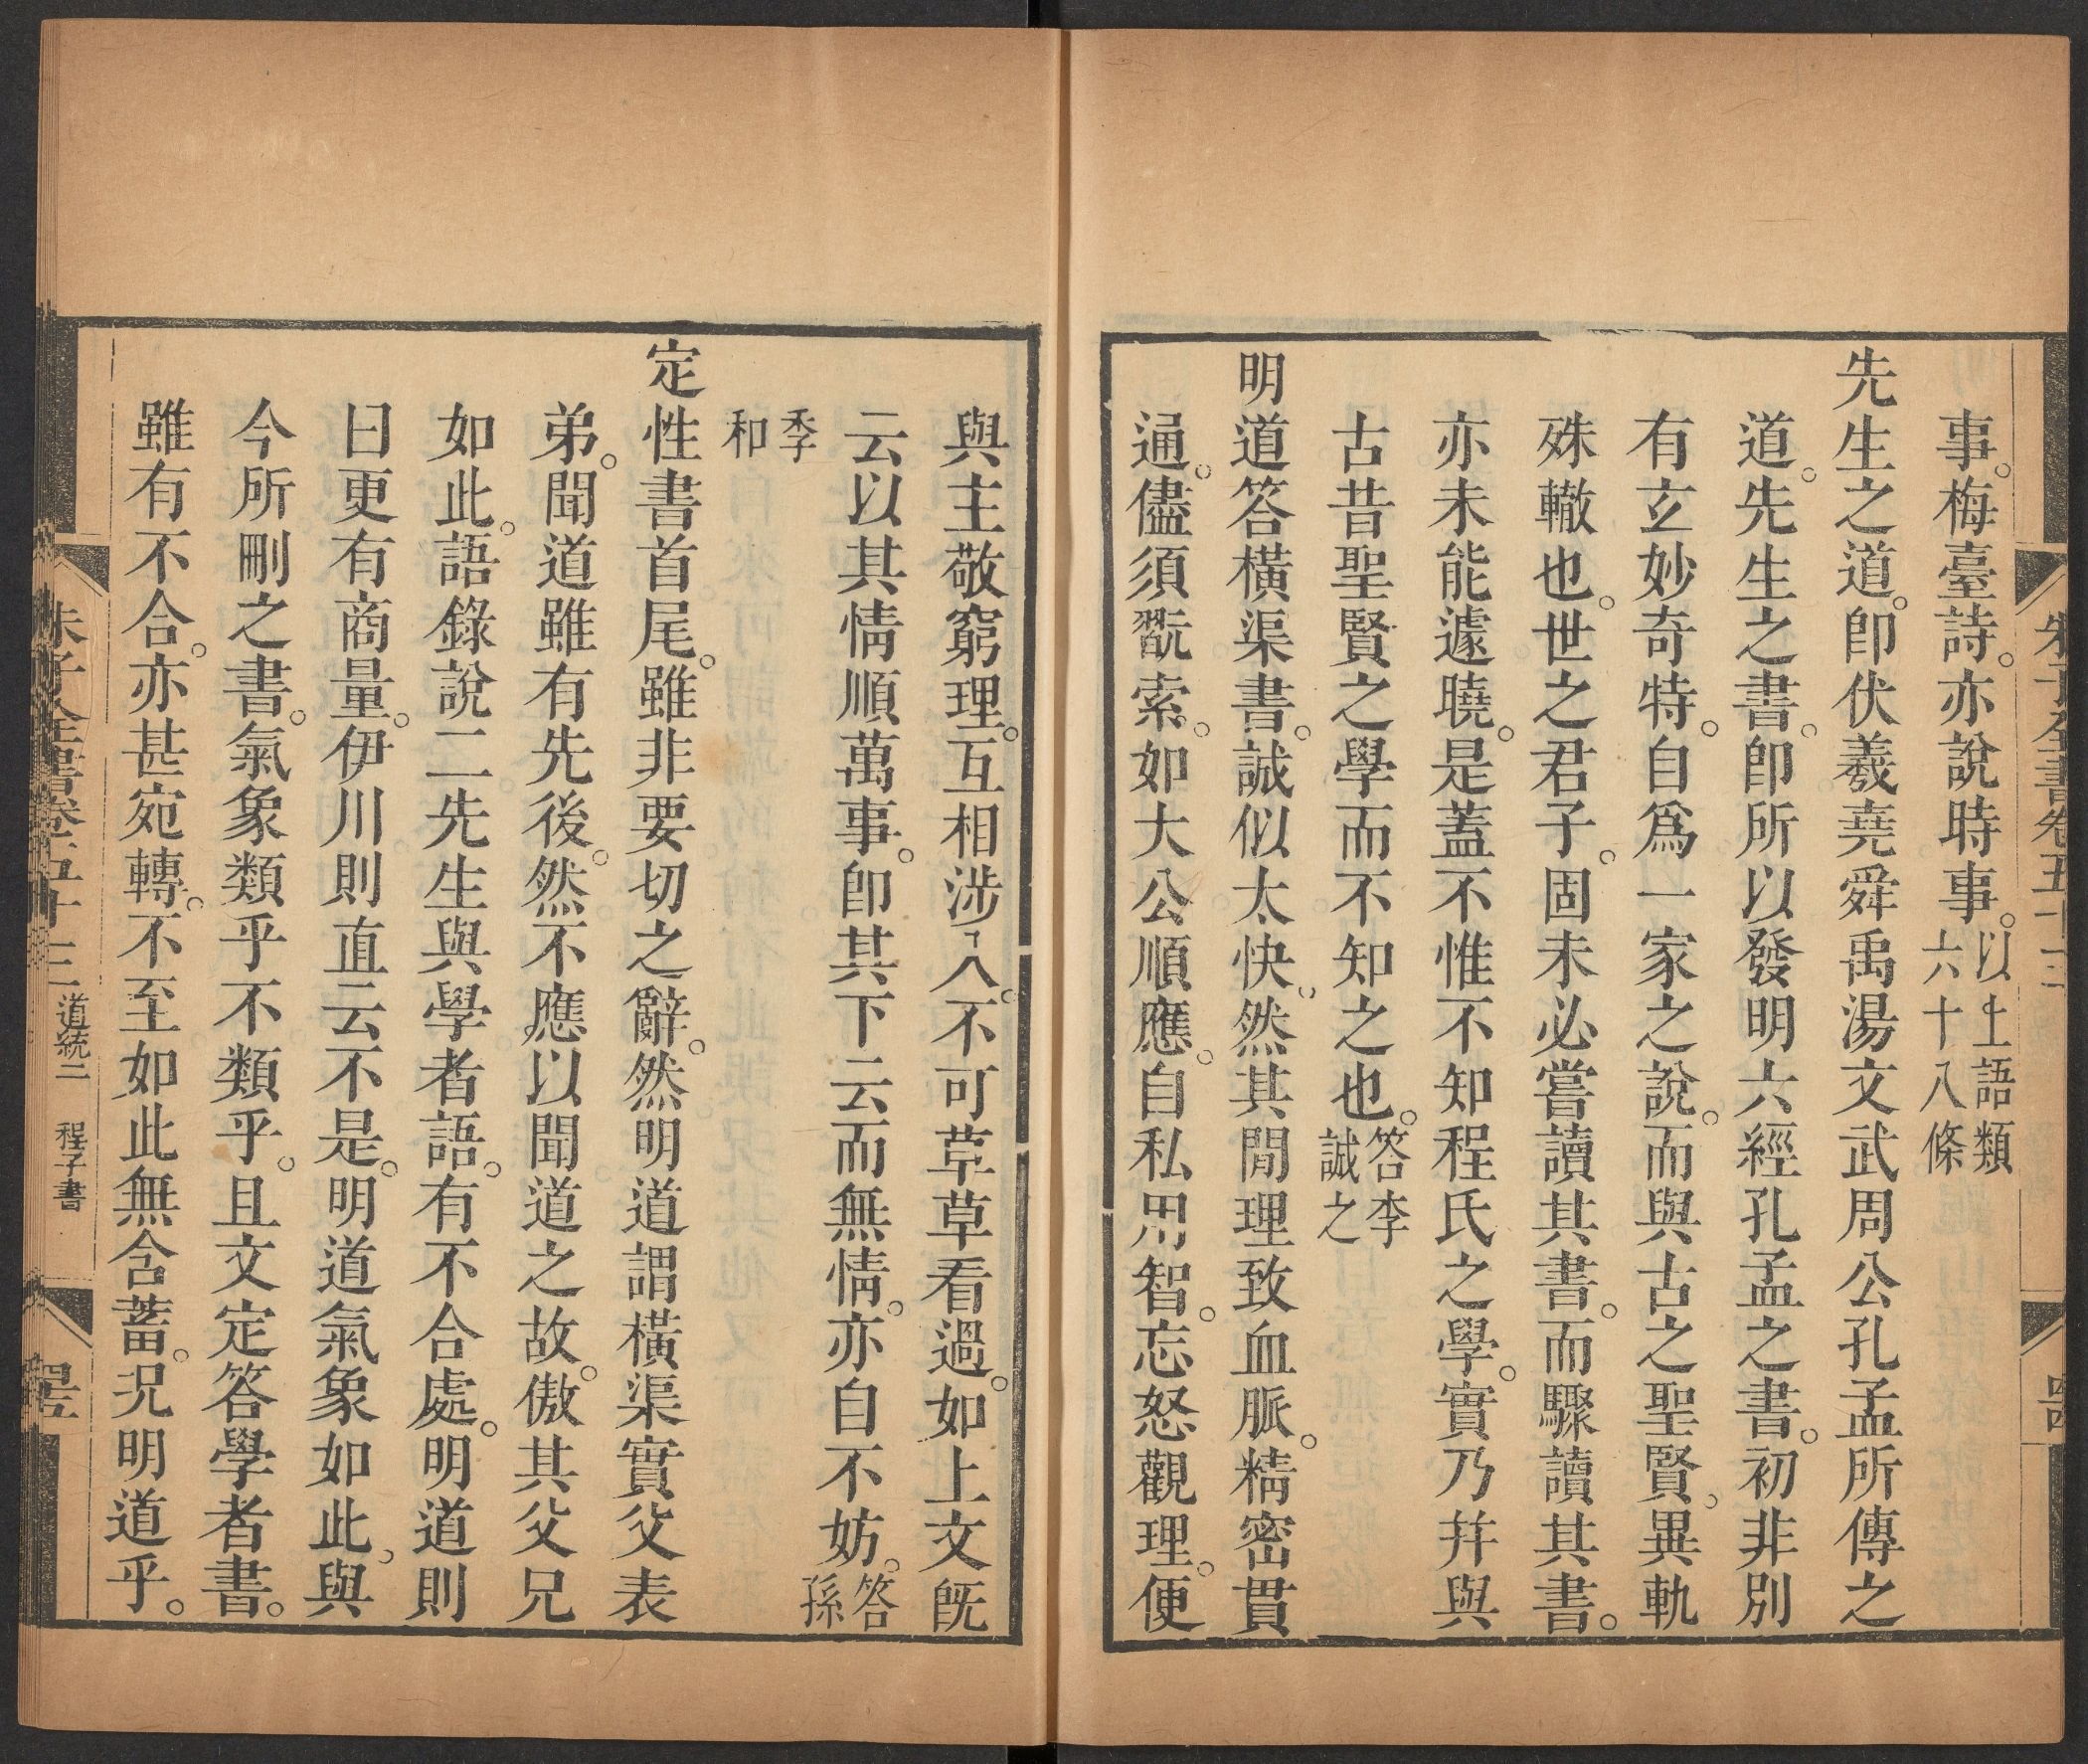 朱子全書卷五十三
事。梅臺詩。亦說時事。以上語類六十八條
先生之道。卽伏羲堯舜禹湯文武周公孔孟所傳之
道。先生之書。卽所以發明六經孔孟之書。初非別
有玄妙奇特。自爲一家之說。而與古之聖賢。異軌
殊轍也。世之君子。固未必嘗讀其書。而驟讀其書。
亦未能遽曉。是蓋不惟不知程氏之學。實乃幷與
古昔聖賢之學而不知之也。答李誠之
明道答橫渠書。誠似太快。然其閒理致血脈。精密貫
通。儘須翫索。如大公順應。自私用智。忘怒觀理。便
與主敬窮理。互相涉入。不可草草看過。如上文旣
云以其情順萬事。卽其下云而無情。亦自不妨。答孫
季和
定性書首尾。雖非要切之辭。然明道謂橫渠實父表
弟。聞道雖有先後。然不應以聞道之故。傲其父兄
如此。語錄說二先生與學者語。有不合處。明道則
曰更有商量。伊川則直云不是。明道氣象如此。與
今所刪之書。氣象類乎不類乎。且文定答學者書。
雖有不合。亦甚宛轉。不至如此無含蓄。況明道乎。
朱子全書卷五十三 道統二 程子書